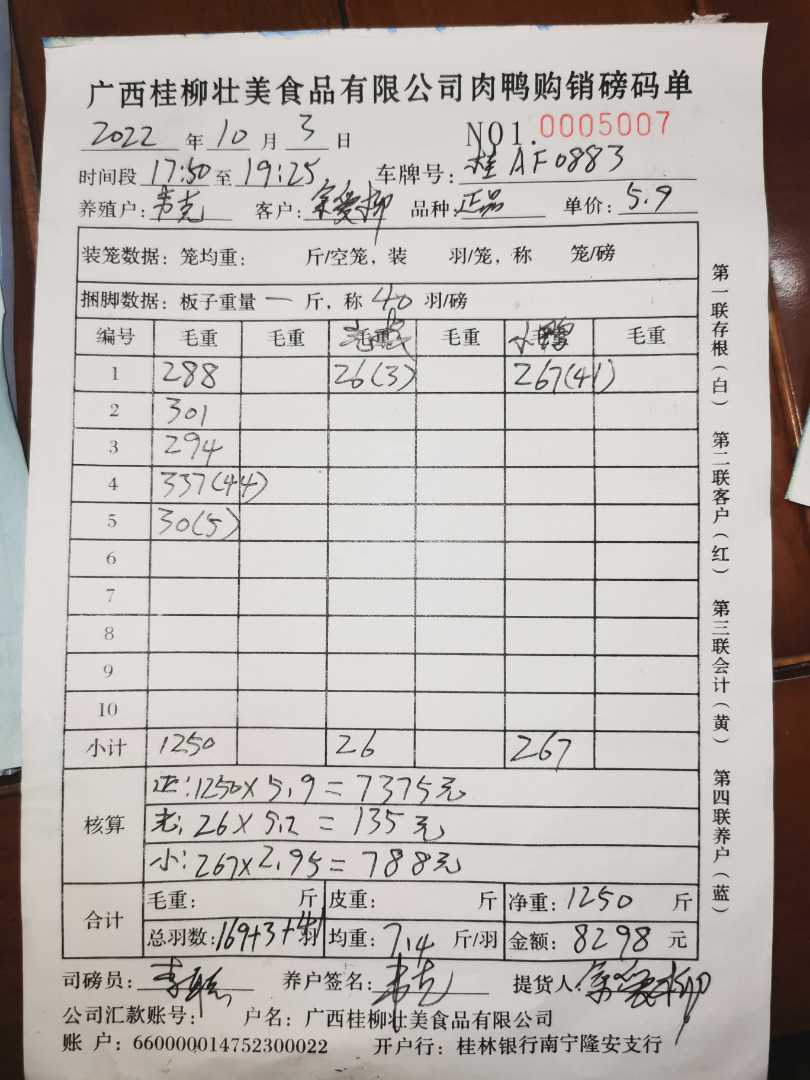 广西桂柳壮美食品有限公司肉鸭购销磅码单
2022 年 10 月 3 日 NO1. 0005007
时间段 17:50 至 19:25 车牌号: 桂AF0883
养殖户: 韦克 客户: 品种: 正品 单价: 5.9
装笼数据: 笼均重: 斤/空笼, 装 羽/笼, 称 笼/磅
捆脚数据: 板子重量 一 斤, 称 40 羽/磅
编号 毛重 毛重 毛重 毛重 小鸭 毛重
1 288 26(3) 267(41)
2 301
3 294
4 337(44)
5 30(5)
6
7
8
9
10
小计 1250 26 267
核算 正: 1250×5.9=7375元
老: 26×5.2=135元
小: 267×2.95=788元
合计 毛重: 斤 皮重: 斤 净重: 1250 斤
总羽数: 169+3+41 羽 均重: 7.4 斤/羽 金额: 8298 元
司磅员: 养户签名: 韦克 提货人:
公司汇款账号: 户名: 广西桂柳壮美食品有限公司
账 户: 660000014752300022 开户行: 桂林银行南宁隆安支行
第一联存根(白) 第二联客户(红) 第三联会计(黄) 第四联养户(蓝)